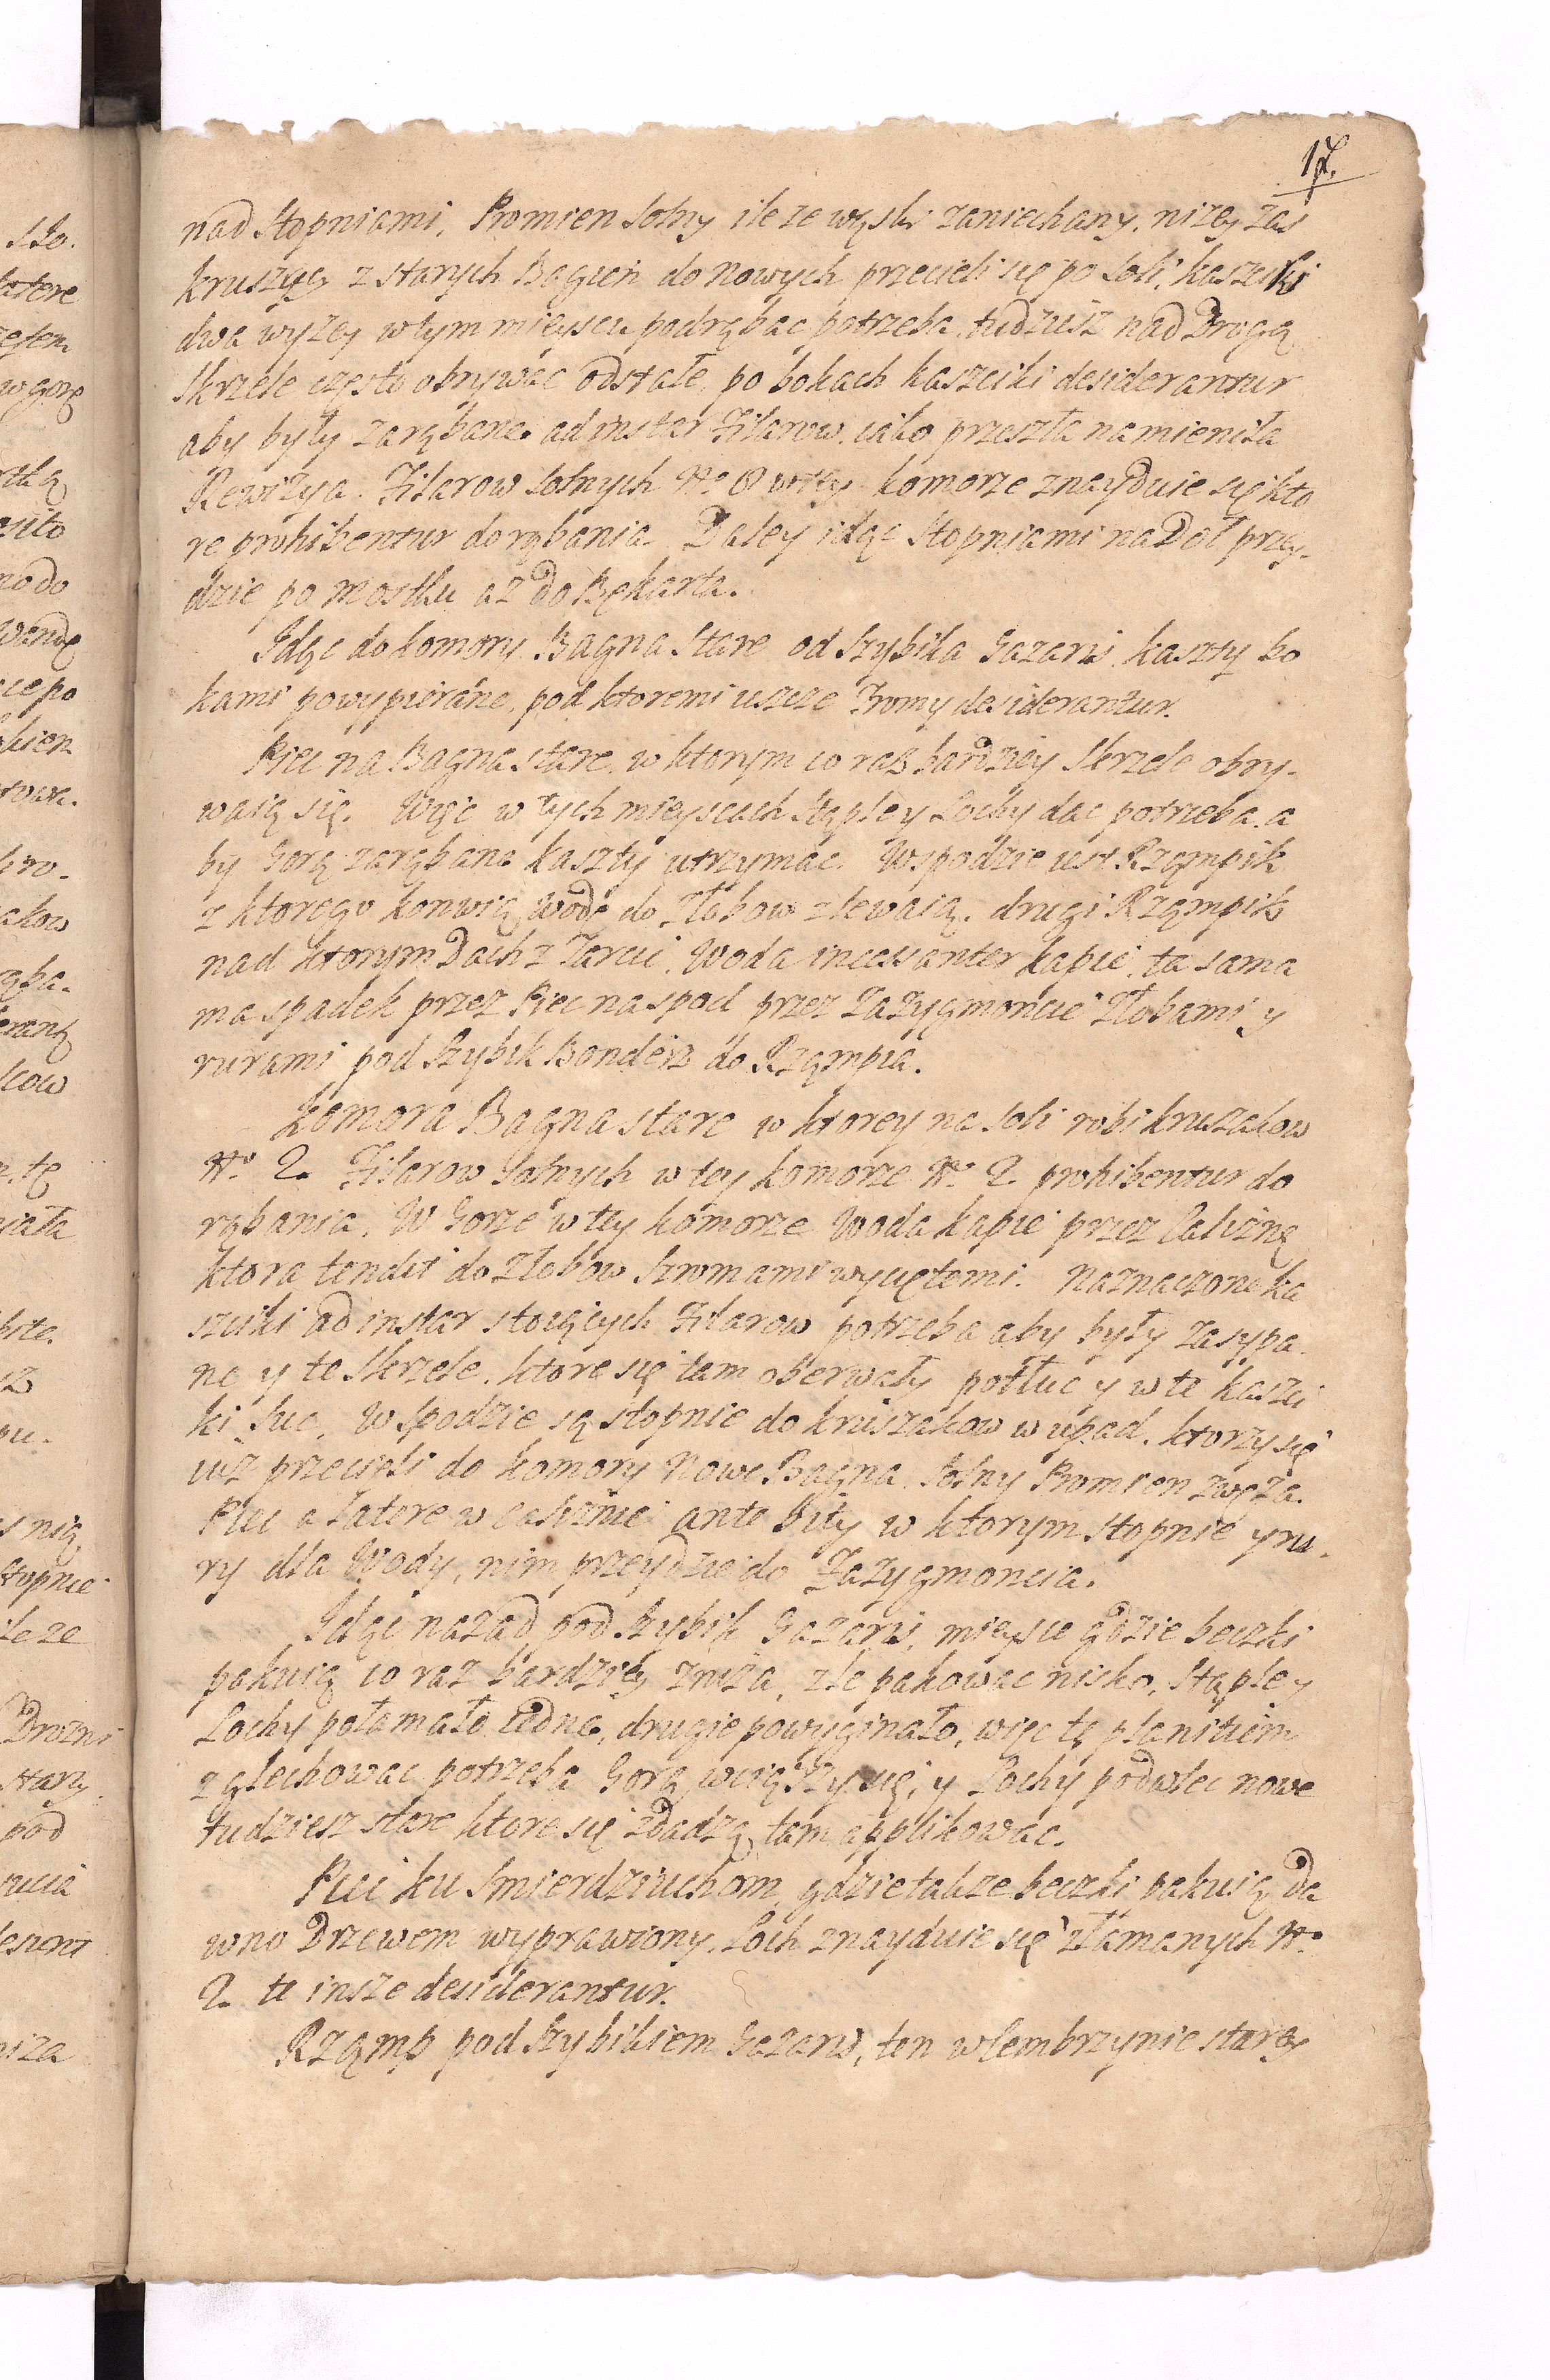 17.
nad Stopniami, Promien Solny ile ze wąski zaniechany, nizey zas
kruszyey z starych Bagien do Nowych przecieli się po Soli, kasziki
dwa wyzey w tym mieyscu podrąbac potrzeba, tudziesz nad Drogą
Skrzele często obrywac odstałe, po bokach kasziki desiderantur
aby były zarąbane ad instar Filarow, iako przeszła namieniła
Rewizya. Filarow Solnych No 8 w tey komorze znayduie się kto
re prohibentur do rąbania. Daley idąc Stopniami na Doł przey-
dzie po mostku az do Bękarta.
Idąc do komory Bagna Stare od Szybika Gazaris, kaszty bo
kami powypierane, pod ktoremi iescze Fromy desiderantur.
Piec na Bagna Stare, w ktorym co raz bardziey Skrzele obry-
waią się. Więc w tych mieyscach Stęple y Lochy dac potrzeba, a
by Gorą zarąbane kaszty utrzymac. W spodzie iest Rząmpik
z ktorego konwią Wodę do Złobow zlewaią, drugi Rząmpik
nad ktorym Dach z Tarcic, Woda incessanter kapie, ta sama
ma spadek przez Piec na spod przez Zazygmoncie Złobami y
rurami pod Szybik Bonder do Rząmpia.
Komora Bagna stare w ktorey na Soli robi kruszakow
No 2. Filarow Solnych w tey komorze No 2. prohibentur do
rąbania. W Gorze w tey komorze Woda kapie przez Caliznę
ktora tendit do Złobow Szromami wyciętemi. Naznaczone ka
sziki ad instar stoiących Filarow potrzeba aby były zasypa
ne y te Skrzele, ktore się tam oberwały potłuc y w te kaszi
ki suc. W Spodzie są stopnie do kruszakow w upad, ktorzy się
iuż przecieli do komory Nowe Bagna, Solny Promien zwęża.
Piec a latere w caliznie ante bity w ktorym stopnie y ru-
ry dla Wody, nim przeydzie do Zazygmoncia.
Idąc nazad pod Szybik Gazaris, mieysce gdzie beczki
pakuią co raz bardziey zniza, zle pakowac nisko, Stęple y
Lochy połamało iedne, drugie powyginało, więc tę planitiem
zglechowac potrzeba Gorą wciąszy się, y Lochy podwlec nowe
tudziesz stare ktore się zdadzą tam applikowac.
Piec ku Smierdziuchom, gdzie takze beczki pakuią, Da
wno Drzewem wyprawiony. Loch znayduie się złamanych No
2. te insze desiderantur.
Rząmp pod Szybikiem Gazaris, ten w Cembrzynie starey